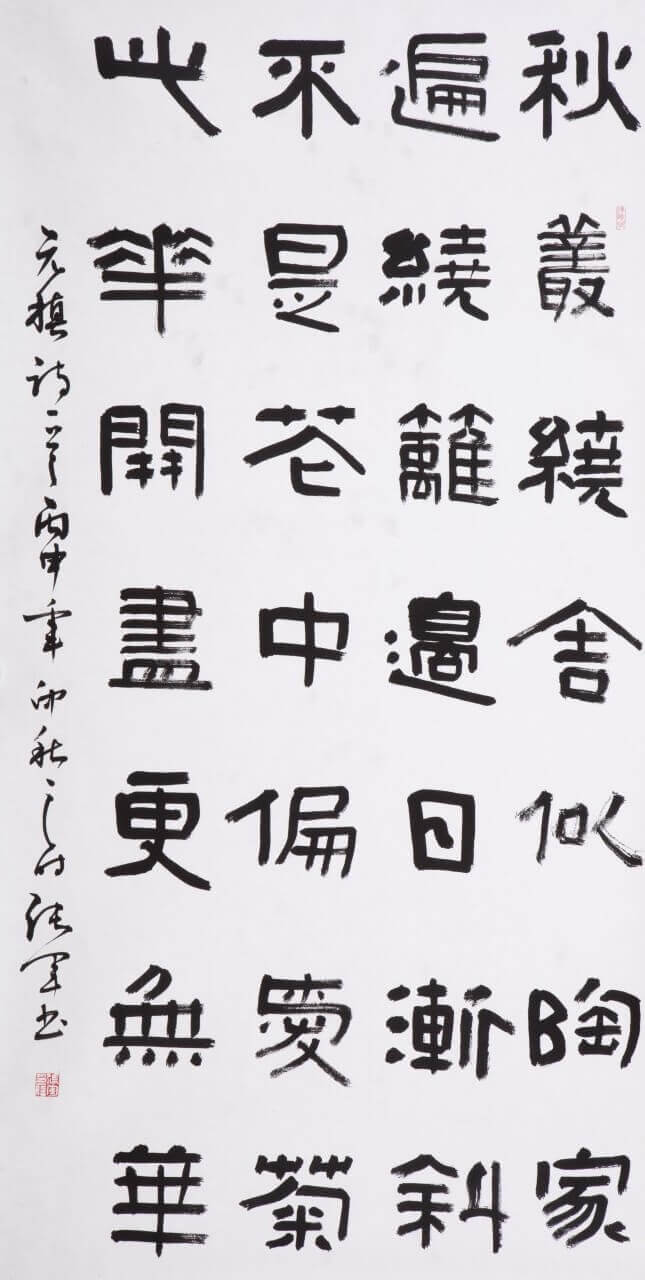 秋叢繞舍似陶家
遍繞籬邊日漸斜
不是花中偏愛菊
此華開盡更無華
元稹詩一首丙申年仲秋之時張軍書